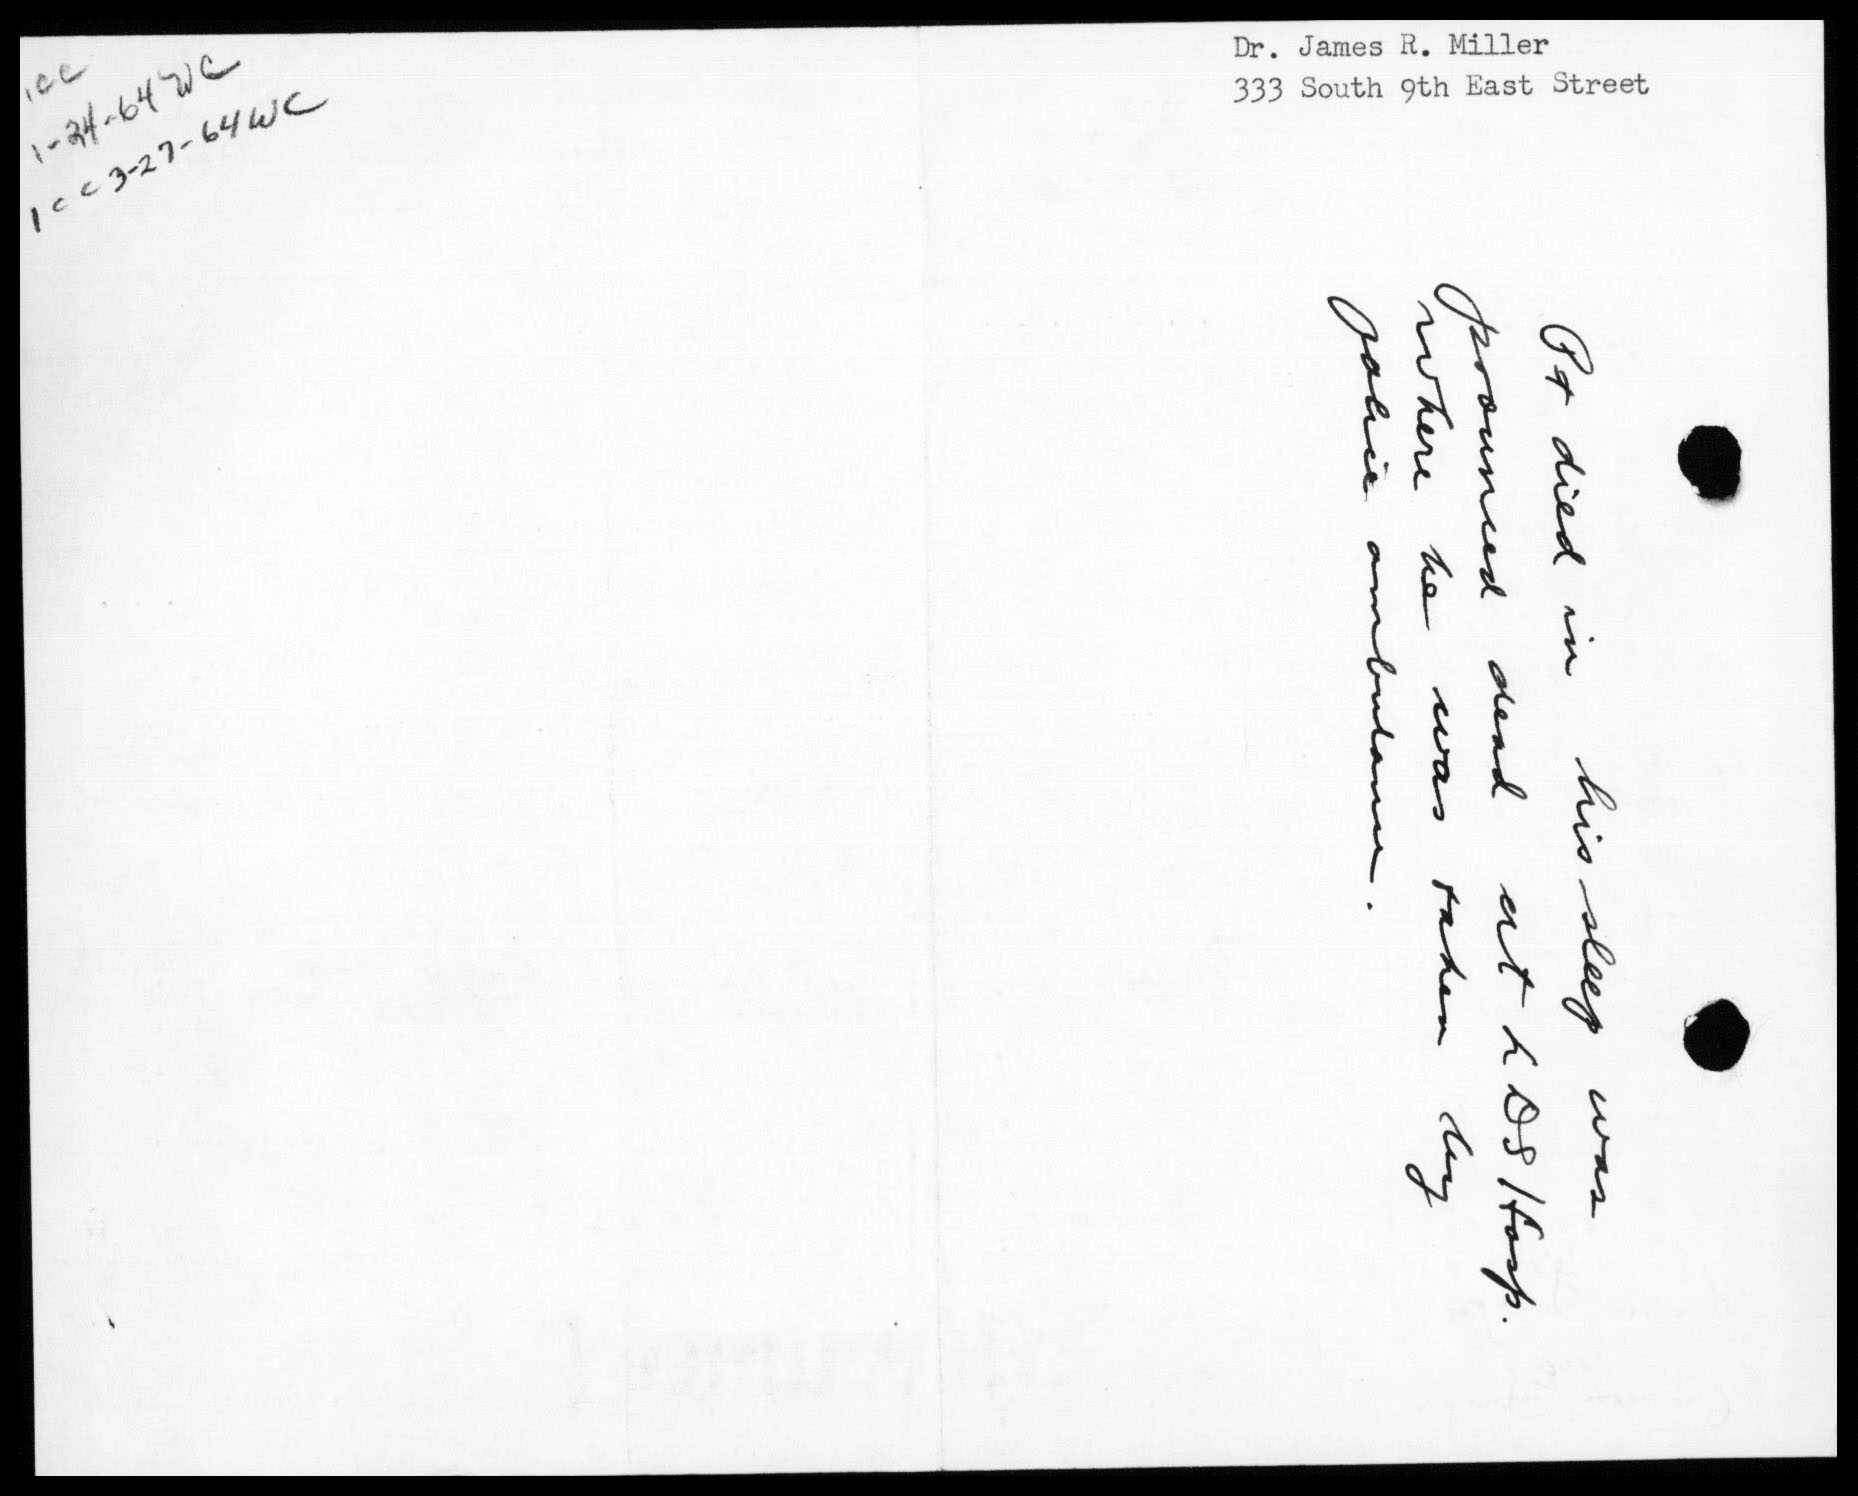 1CC
1-24-64 WC
1cc 3-27-64 WC
Dr. James R. Miller
333 South 9th East Street
Pt died in his sleep was
pronounced dead at LDS Hosp.
where he was taken by
police ambulance.